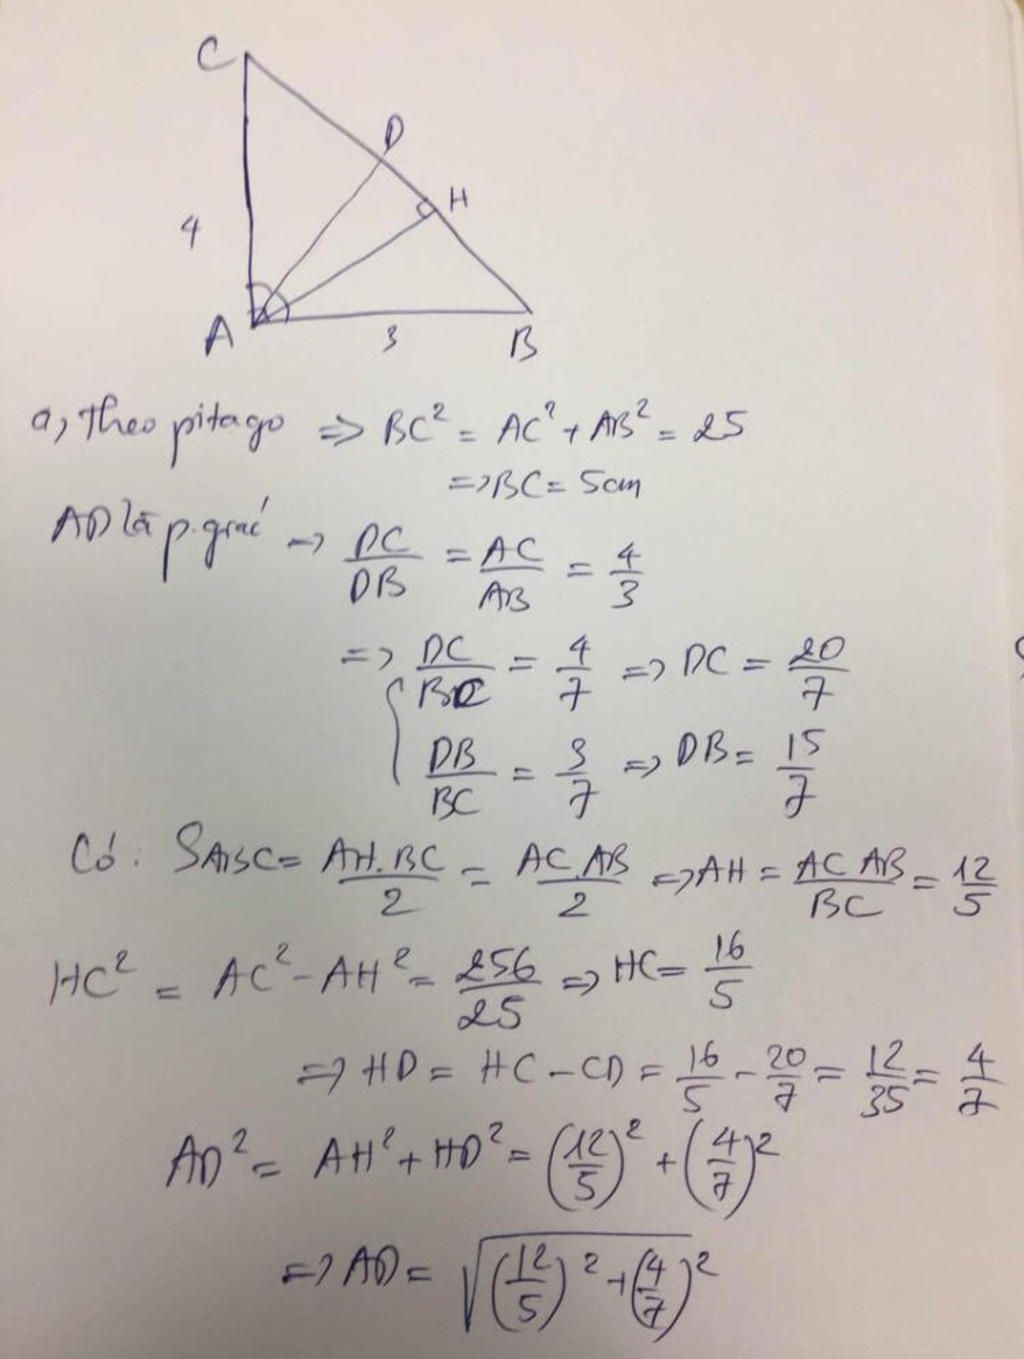 C
D
H
4
A
3
B
a, Theo pitago => BC² = AC² + AB² = 25
=> BC = 5cm
AD là p.giác => DC/DB = AC/AB = 4/3
=> { DC/BC = 4/7 => DC = 20/7
DB/BC = 3/7 => DB = 15/7
Có: SABC = AH.BC/2 = AC.AB/2 => AH = AC AB/BC = 12/5
HC² = AC² - AH² = 256/25 => HC = 16/5
=> HD = HC - CD = 16/5 - 20/7 = 12/35 = 4/7
AD² = AH² + HD² = (12/5)² + (4/7)²
=> AD = √(12/5)² + (4/7)²